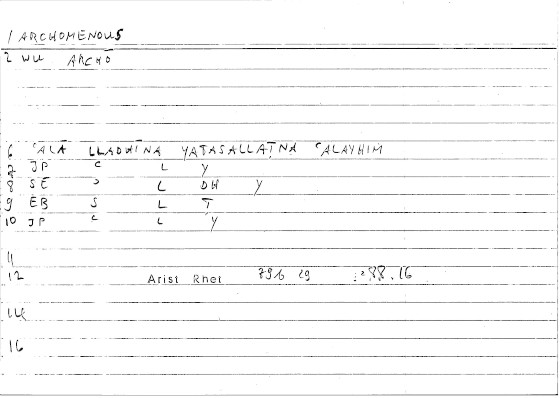 1 ARCHOMENOUS
2 WU ARCHŌ
6 ʿALĀ LLADHĪNA YATASALLAṬNA ʿALAYHIM
7 JP C L Y
8 SE ɔ L DH Y
9 EB S L T
10 JP C L Y
11
12 Arist Rhet 79b 29 88.16
14
16